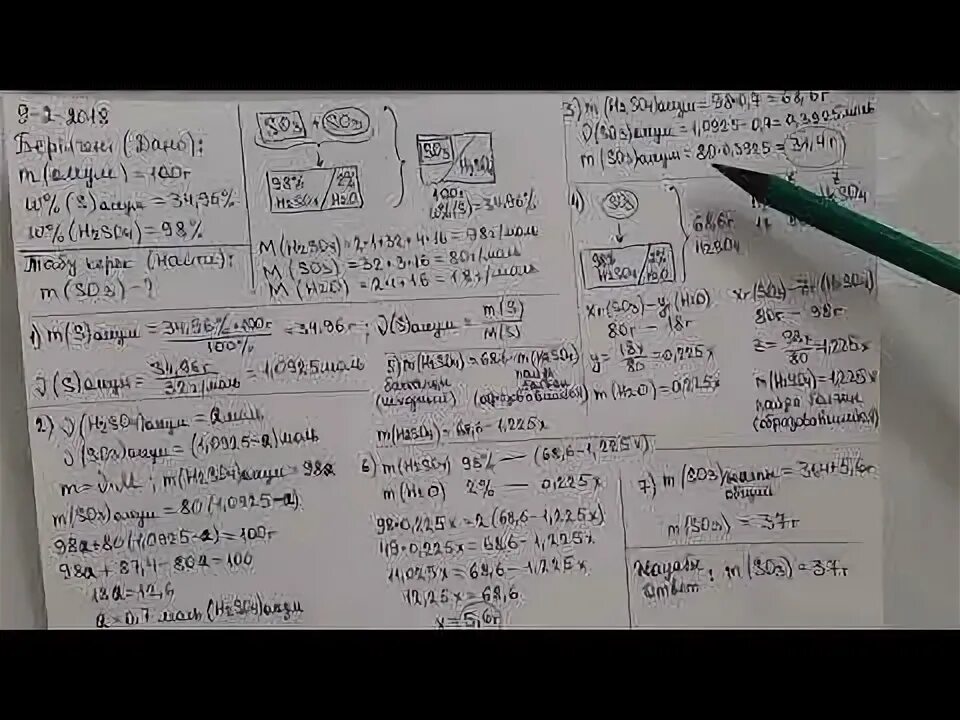 9-2-2018
Берілгені (Дано):
m(олеум) = 100г
W%(S)олеум = 34,96%
W%(H2SO4) = 98%
Табу керек (Найти):
m(SO3) - ?
SO3 + SO3
98% H2SO4 / 2% H2O
SO3 / H2SO4
100г
W%(S) = 34,96%
M(H2SO4) = 2·1+32+4·16 = 98г/моль
M(SO3) = 32+3·16 = 80г/моль
M(H2O) = 2·1+16 = 18г/моль
1) m(S)олеум = 34,96%·100г / 100% = 34,96г; ν(S)олеум = m(S) / M(S)
ν(S)олеум = 34,96г / 32г/моль = 1,0925моль
2) ν(H2SO4)олеум = a моль
ν(SO3)олеум = (1,0925-a)моль
m=ν·M; m(H2SO4)олеум = 98a
m(SO3)олеум = 80(1,0925-a)
98a+80(1,0925-a) = 100г
98a+87,4-80a = 100
18a = 12,6
a = 0,7 моль (H2SO4)олеум
3) m(H2SO4)олеум = 98·0,7 = 68,6г
ν(SO3)олеум = 1,0925-0,7 = 0,3925моль
m(SO3)олеум = 80·0,3925 = 31,4г
4) SO3
98% H2SO4 / 2% H2O
68,6г
H2SO4
xг(SO3) - yг(H2O)
80г - 18г
y = 18x / 80 = 0,225x
m(H2O) = 0,225x
xг(SO3) - zг(H2SO4)
80г - 98г
z = 98x / 80 = 1,225x
m(H2SO4) = 1,225x
пайда болған
(образовавшийся)
5) m(H2SO4) = 68,6 - m(H2SO4)
бастапқы
(исходный)
пайда болған
(образовавшийся)
m(H2SO4) = 68,6-1,225x
6) m(H2SO4) 98% — (68,6-1,225x)
m(H2O) 2% — 0,225x
98·0,225x = 2(68,6-1,225x)
49·0,225x = 68,6-1,225x
11,025x = 68,6-1,225x
12,25x = 68,6
x = 5,6г
7) m(SO3)жалпы = 31,4+5,6г
общий
m(SO3) = 37г
Жауабы: m(SO3) = 37г
ответ